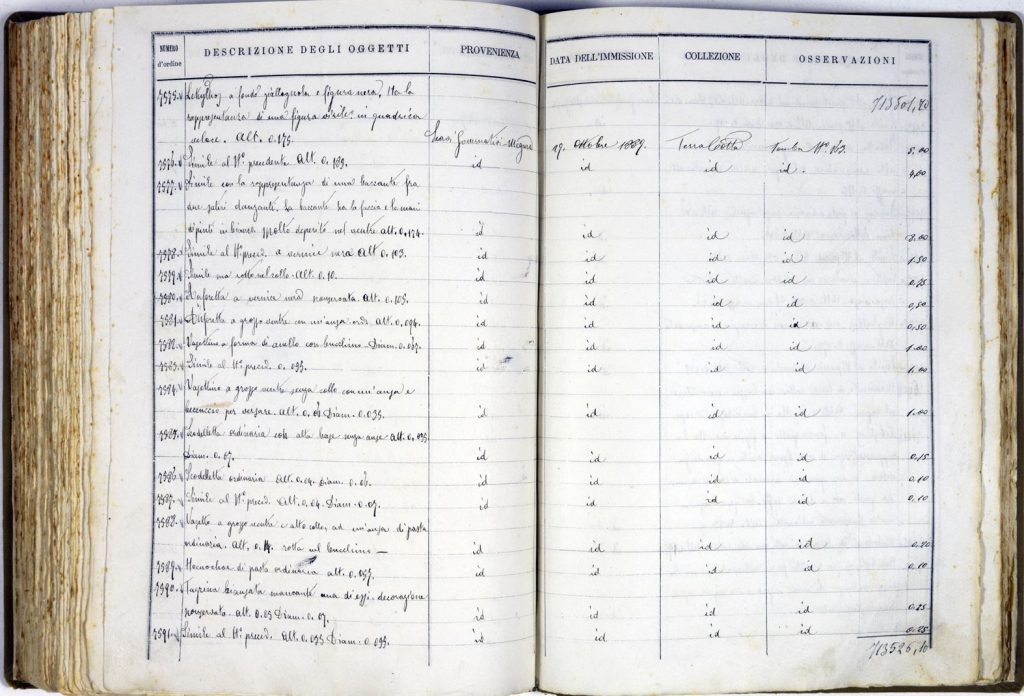 NUMERO d'ordine DESCRIZIONE DEGLI OGGETTI PROVENIENZA DATA DELL'IMMISSIONE COLLEZIONE OSSERVAZIONI
713501,20
7575. Lekythos a fondo giallognola e figura nera, Ha la
rappresentanza di una figura virile in quadriga
veloce. Alt. 0.175. Scavi Megara 19. Ottobre 1889. Terra Cotta Tomba Nº 5.00
7576. Simile al Nº precedente Alt. 0.189. id id id id. 4,00
7577. Simile con la rappresentanza di una baccante fra
due satiri danzante. La baccante ha la faccia e le mani
dipinti in bianco. Molto deperito nel ventre alt. 0.174. id id id id 3.00
7578. Simile al Nº preced. a vernice nera Alt 0.103. id id id id 1.50
7579. Simile ma rotto nel collo. Alt. 0.10. id id id id 0,75
7580. Anforetta a vernice nera Alt. 0.105. id id id id 0,50
7581. a grosso ventre con un'ansa ord. Alt. 0.094. id id id id 0.50
7582. Vasettino a forma di anello con becchino. Diam. 0.067. id id id id 1.00
7583. Simile al Nº preced. 0.055. id id id id 1.00
7584. Vasettino a grosso ventre senza collo con un'ansa e
per versare. Alt. 0.06 Diam. 0.035. id id id id 1.00
7585. Scodelletta ordinaria alla base senza anse Alt. 0.035
Diam. 0.07. id id id id 0,15
7586. Scodelletta ordinaria Alt. 0.04. Diam. 0.06. id id id id 0,10
7587. Simile al Nº preced. Alt. 0.04. Diam. 0.07. id id id id 0,10
7588. Vasetto a grosso ventre e alto collo, ad un'ansa di pasta
ordinaria. Alt. 0.14. rotta nel becchino — id id id id 0.20
7589. di pasta ordinaria alt. 0.057. id id id id 0.10
7590. Tazzina biansata mancante una di essi. decorazione
Alt. 0.03 Diam. 0.07. id id id id 0.25
7591. Simile al Nº preced. Alt. 0.035 Diam. 0.095. id id id id 0.25
713526,10